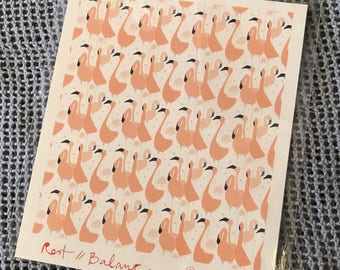 Rest // Balan